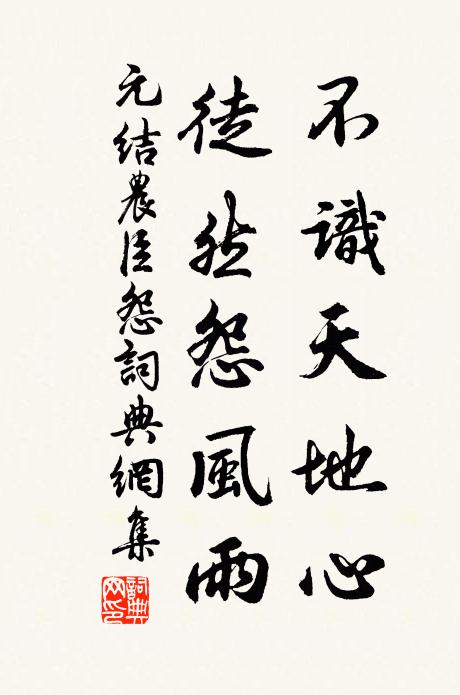 不識天地心
徒然怨風雨
元結農臣怨詞典網集
詞典網印